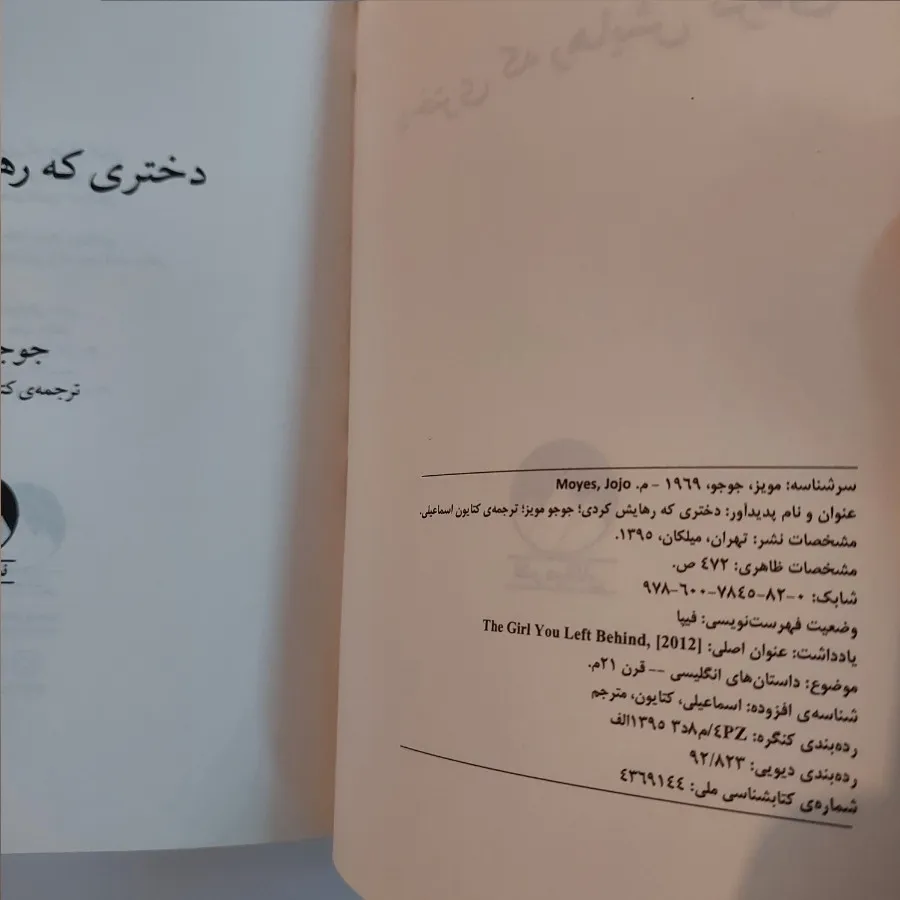 دختری که
جوجو
ترجمه‌ی
سرشناسه: مویز، جوجو، ۱۹۶۹ - م. Moyes, Jojo
عنوان و نام پدیداور: دختری که رهایش کردی؛ جوجو مویز؛ ترجمه‌ی کتایون اسماعیلی.
مشخصات نشر: تهران، میلکان، ۱۳۹۵.
مشخصات ظاهری: ۴۷۲ ص.
شابک: ۰-۸۲-۷۸۴۵-۶۰۰-۹۷۸
وضعیت فهرست‌نویسی: فیپا
یادداشت: عنوان اصلی: The Girl You Left Behind, [2012]
موضوع: داستان‌های انگلیسی -- قرن ۲۱م.
شناسه‌ی افزوده: اسماعیلی، کتایون، مترجم
رده‌بندی کنگره: ۴PZ/م۸د۳ ۱۳۹۵الف
رده‌بندی دیویی: ۹۲/۸۲۳
شماره‌ی کتابشناسی ملی: ۴۳۶۹۱۴۴